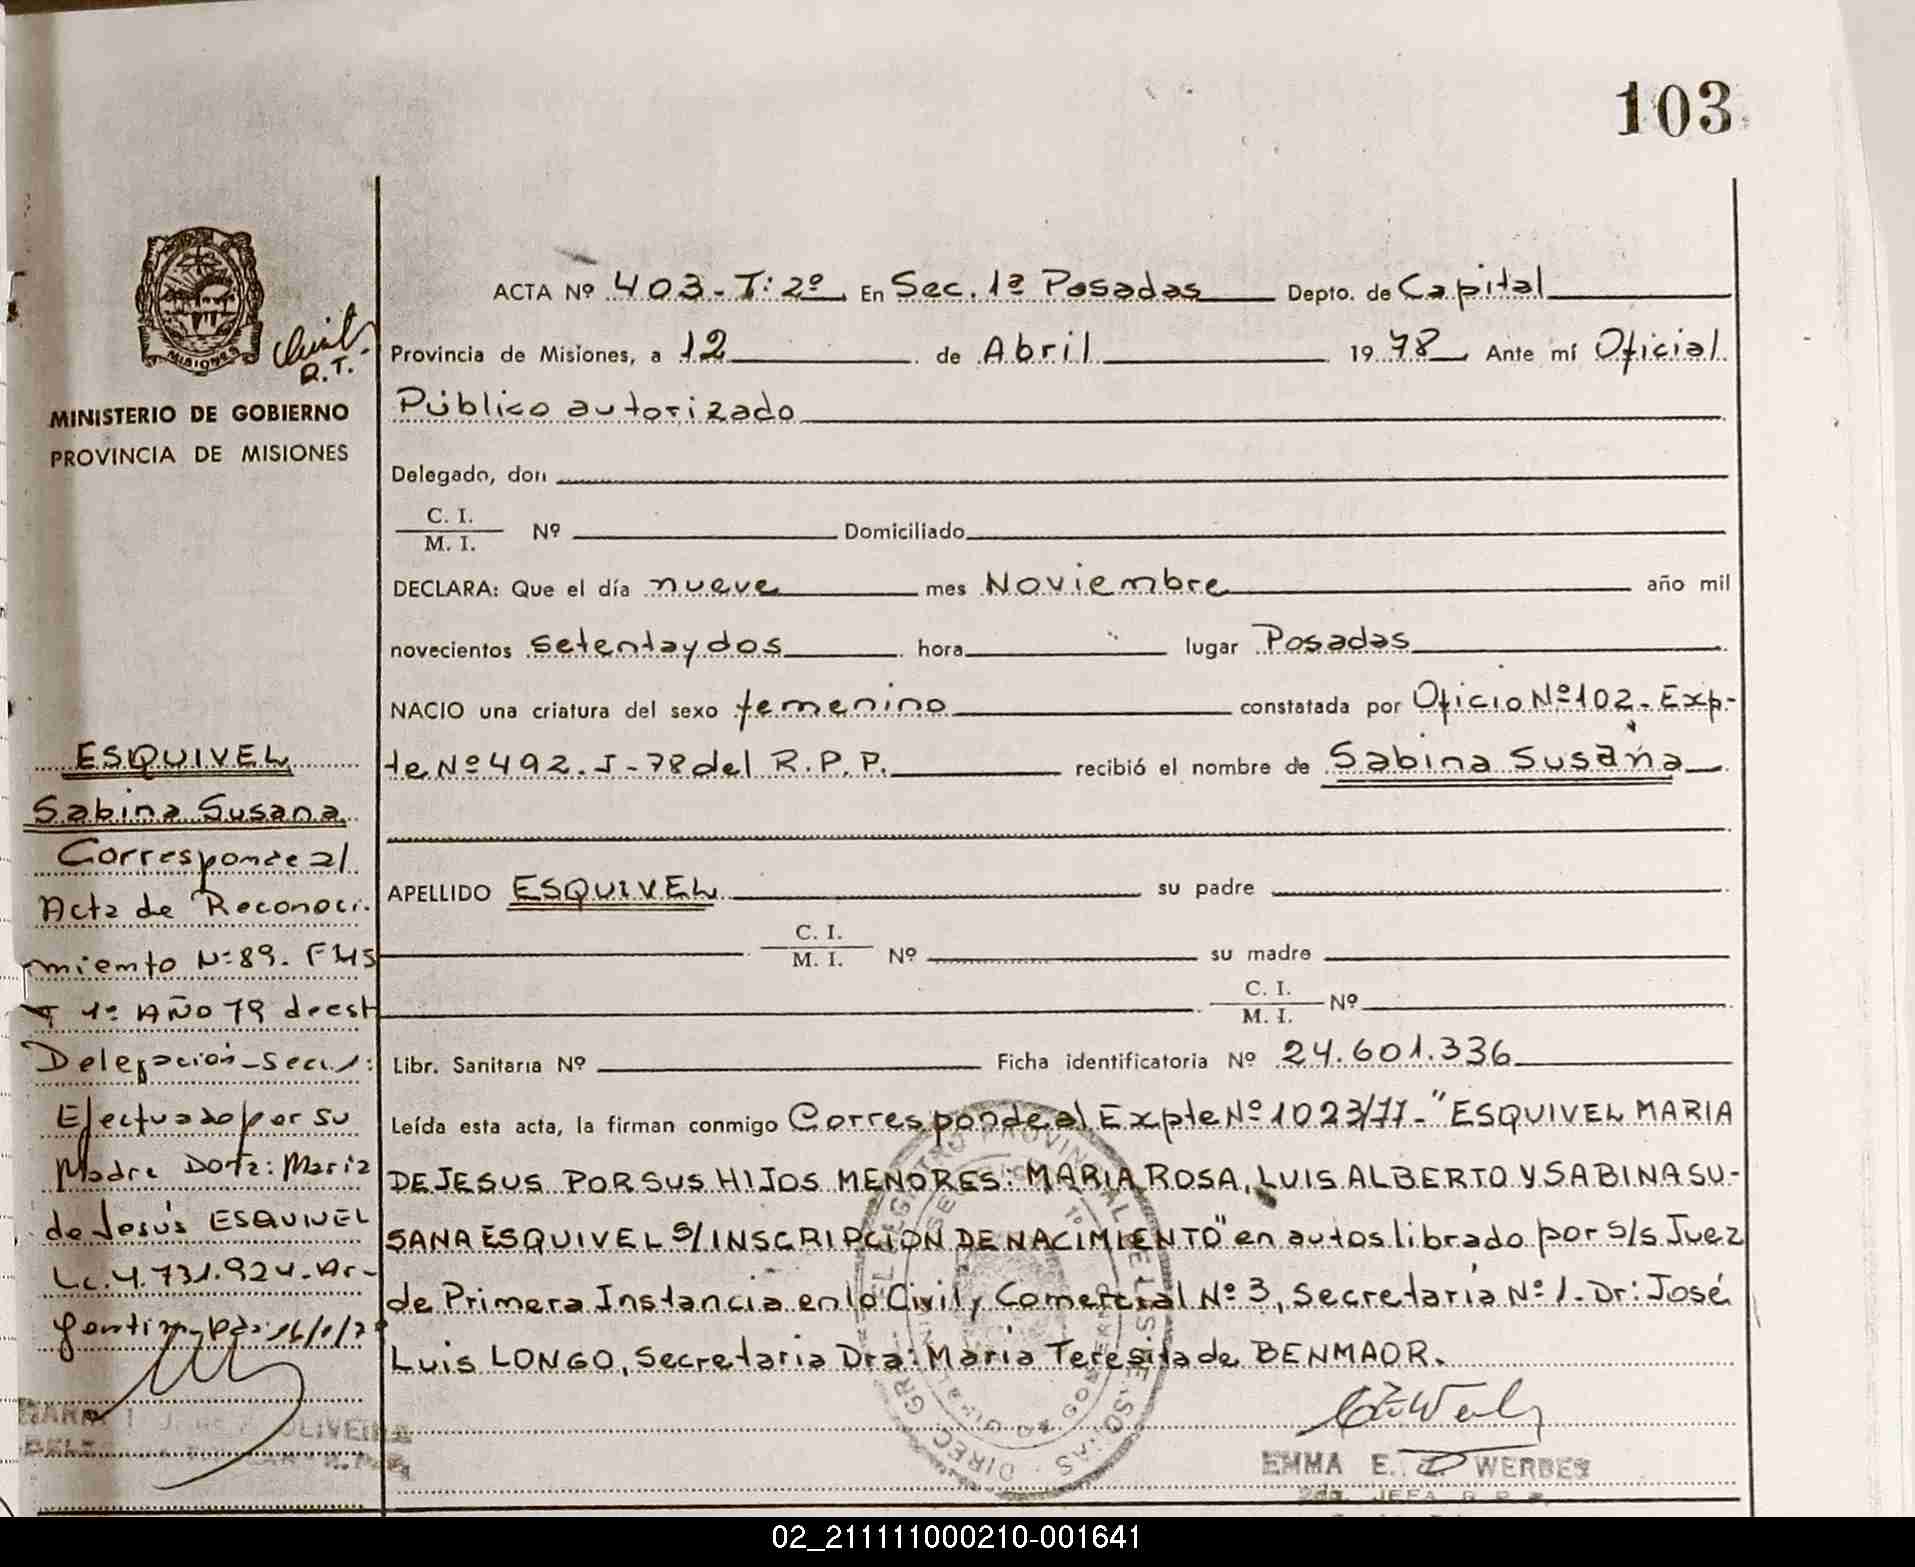 103
ACTA Nº 403-T: 2º En Sec. 1ª Posadas Depto. de Capital
Provincia de Misiones, a 12 de Abril 1978 Ante mí Oficial
Público autorizado
Delegado, don
C. I.
M. I. Nº Domiciliado
DECLARA: Que el día nueve mes Noviembre año mil
novecientos setentaydos hora lugar Posadas
NACIO una criatura del sexo femenino constatada por Oficio Nº 102-Exp-
te Nº 492-J-78 del R.P.P. recibió el nombre de Sabina Susana
APELLIDO ESQUIVEL su padre
C. I.
M. I. Nº su madre
C. I.
M. I. Nº
Libr. Sanitaria Nº Ficha identificatoria Nº 24.601.336
Leída esta acta, la firman conmigo Corresponde al Expte Nº 1023/77-"ESQUIVEL MARIA
DE JESUS POR SUS HIJOS MENORES: MARIA ROSA, LUIS ALBERTO Y SABINA SU-
SANA ESQUIVEL S/INSCRIPCION DE NACIMIENTO" en autos librado por S/S Juez
de Primera Instancia en lo Civil y Comercial Nº 3, Secretaria Nº 1-Dr: José
Luis LONGO, Secretaria Dra: Maria Teresita de BENMAOR.
EMMA E. Z. WERBES
JEFA R. P.
MISIONES
MINISTERIO DE GOBIERNO
PROVINCIA DE MISIONES
ESQUIVEL
Sabina Susana
Corresponde al
Acta de Reconoci-
miento Nº 89-
Tº 1º AÑO 79 de est
Delegación-Secc.
Efectuado por su
Madre Doña: Maria
de Jesús ESQUIVEL
Lc. 4.731.924-Ar-
gentina
OLIVEIRA
02_211111000210-001641